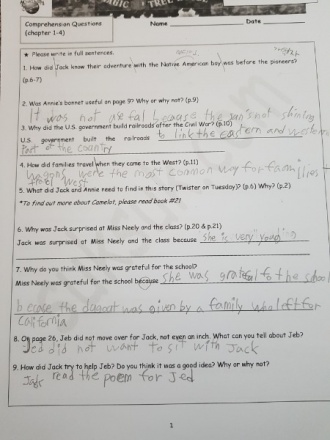 MAGIC TREE HOUSE
Comprehension Questions Name Date
(chapter 1-4)
★ Please write in full sentences.
1. How did Jack know their adventure with the Native American boy was before the pioneers?
(p.6-7)
2. Was Annie's bonnet useful on page 9? Why or why not? (p.9)
It was not useful because the sun is not shining
3. Why did the U.S. government build railroads after the Civil War? (p.10)
U.S. government built the railroads to link the eastern and western
part of the country
4. How did families travel when they came to the West? (p.11)
wagons were the most common way for families
travel west
5. What did Jack and Annie need to find in this story (Twister on Tuesday)? (p.6) Why? (p.2)
*To find out more about Camelot, please read book #21
6. Why was Jack surprised at Miss Neely and the class? (p.20 & p.21)
Jack was surprised at Miss Neely and the class because she is very young
7. Why do you think Miss Neely was grateful for the school?
Miss Neely was grateful for the school because she was grateful to the school
becase the dugout was given by a family who left for
California
8. On page 26, Jeb did not move over for Jack, not even an inch. What can you tell about Jeb?
Jed did not want to sit with Jack
9. How did Jack try to help Jeb? Do you think it was a good idea? Why or why not?
read the poem for Jed
1